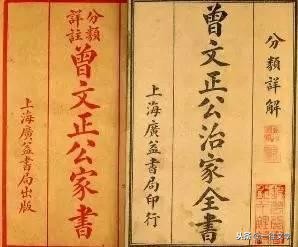 分類
詳註
曾文正公家書
上海廣益書局出版
分類詳解
曾文正公治家全書
上海廣益書局印行